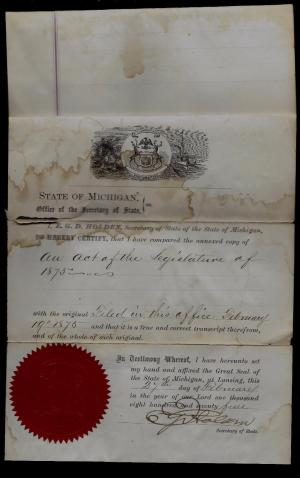 STATE OF MICHIGAN,
Office of the Secretary of State, } ss.
I, E. G. D. HOLDEN, Secretary of State of the State of Michigan,
DO HEREBY CERTIFY, that I have compared the annexed copy of
An act of the Legislature of
1875
with the original Filed in this office February
19th 1875 and that it is a true and correct transcript therefrom,
and of the whole of such original.
In Testimony Whereof, I have hereunto set
my hand and affixed the Great Seal of
the State of Michigan, at Lansing, this
27th day of February
in the year of our Lord one thousand
eight hundred and seventy five
Secretary of State.